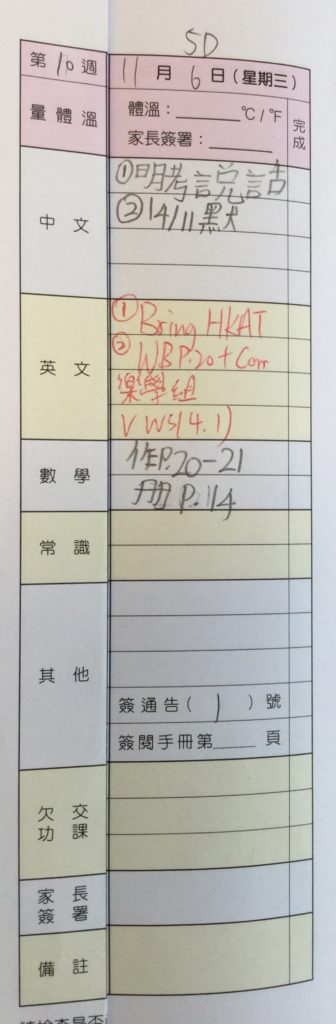 5D
第10週 11月6日(星期三)
量體溫 體溫：______°C/°F 完成
家長簽署：______
中文 ①明考說話
②14/11默
英文 ①Bring HKAT
②WB P.20+Corr
樂學組
V WS(4.1)
數學 作P.20-21
冊P.114
常識
其他
簽通告(1)號
簽閱手冊第____頁
欠交功課
家長簽署
備註